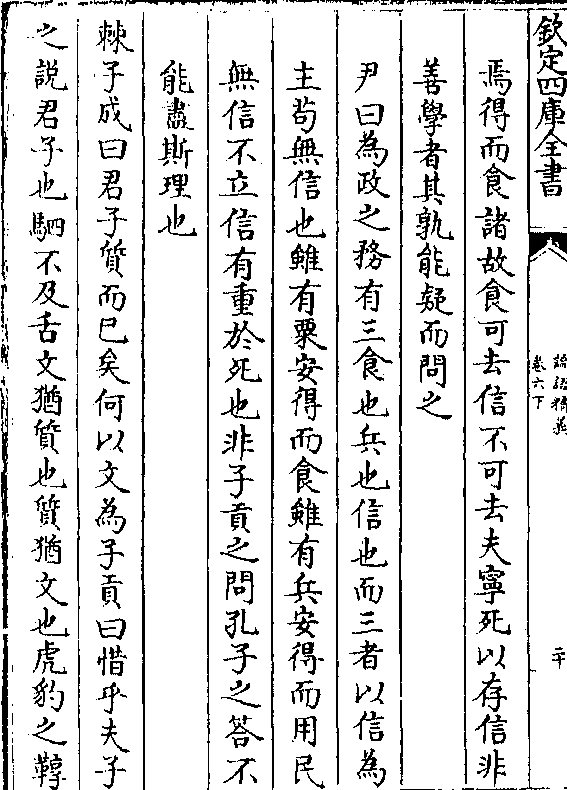 欽定四庫全書
論語精義
卷六下
二十
焉得而食諸故食可去信不可去夫寧死以存信非
善學者其孰能疑而問之
尹曰為政之務有三食也兵也信也而三者以信為
主苟無信也雖有粟安得而食雖有兵安得而用民
無信不立信有重於死也非子貢之問孔子之答不
能盡斯理也
棘子成曰君子質而已矣何以文為子貢曰惜乎夫子
之說君子也駟不及舌文猶質也質猶文也虎豹之鞹